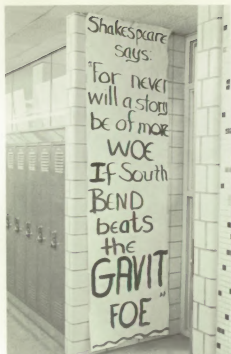 Shakespeare
says:
"For never
will a story
be of more
WOE
If South
BEND
beats
the
GAVIT
FOE"